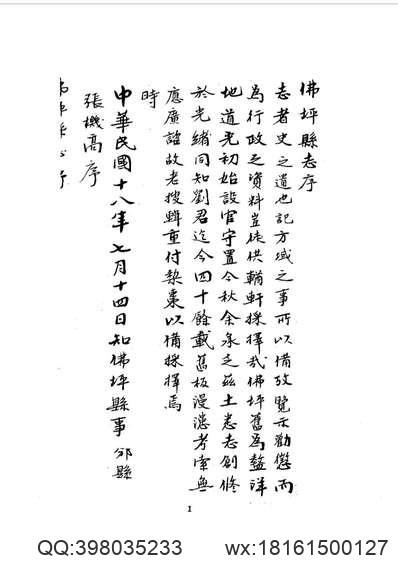 佛坪縣志序
志者史之遺也記方域之事所以備攷覽示勸懲而
為行政之資料豈徒供輶軒採擇哉佛坪舊為盩洋
地道光初始設官守置今秋余承乏茲土悉志創修
於光緒同知劉君迄今四十餘載舊板漫漶考索無
應廣諮故老搜輯重付棃棗以備採擇焉
時
中華民國十八年七月十四日知佛坪縣事 縣
張機高序
1
QQ:398035233 wx:18161500127